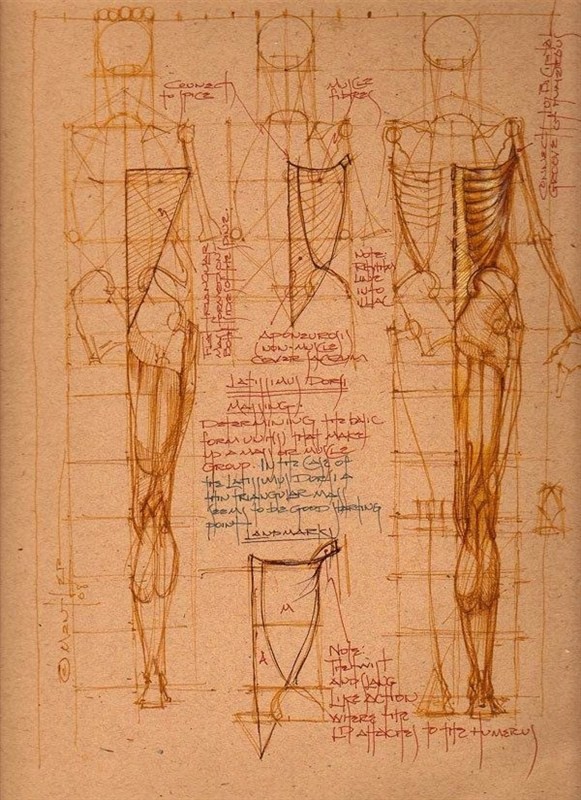 CONNECT
TO SPICE
MUSCLE
FIBRES
CONNECT INTO BICIPITAL
GROOVE OF HUMEROUS
THIN TRIANGULAR
MASS
BOTH SIDES OF THE SPINE.
NOTE:
RHYTHM
LINE
INTO
ILIAC
APONEUROSIS
NON-MUSCLE
COVER SACRUM
LATISSIMUS DORSI
MASSING:
DETERMINING THE BASIC
FORM UNITS THAT MAKE
UP A MASS OR MUSCLE
GROUP. IN THE CASE OF
THE LATISSIMUS DORSI A
THIN TRIANGULAR MASS
SEEMS TO BE GOOD STARTING
POINT
LANDMARKS
M
A
NOTE:
THE TWIST
AND
LIKE ACTION
WHERE THE
LD ATTACHES TO THE HUMERUS